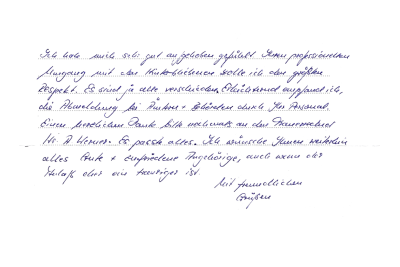 Ich habe mich sehr gut aufgehoben gefühlt. Ihrem professionellen
Umgang mit den Hinterbliebenen zolle ich den größten
Respekt. Es sind ja alle verschieden. Erleichternd empfand ich,
die Abmeldung bei Ämtern + Behörden durch Ihr Personal.
Einen herzlichen Dank bitte nochmals an den Trauerredner
Hr. A. Werner. Es passte alles. Ich wünsche Ihnen weiterhin
alles Gute + zufriedene Angehörige, auch wenn der
Anlaß eher ein trauriger ist.
Mit freundlichen
Grüßen